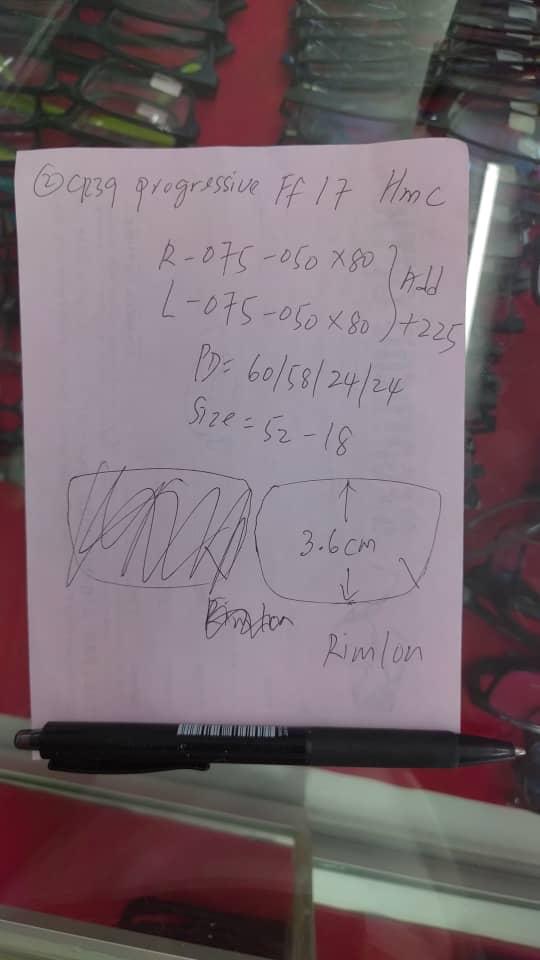 ② CR39 progressive FF 17 Hmc
R -075 -050 x80 } Add
L -075 -050 x80 } +225
PD = 60/58/24/24
Size = 52-18
3.6cm
Rimlon